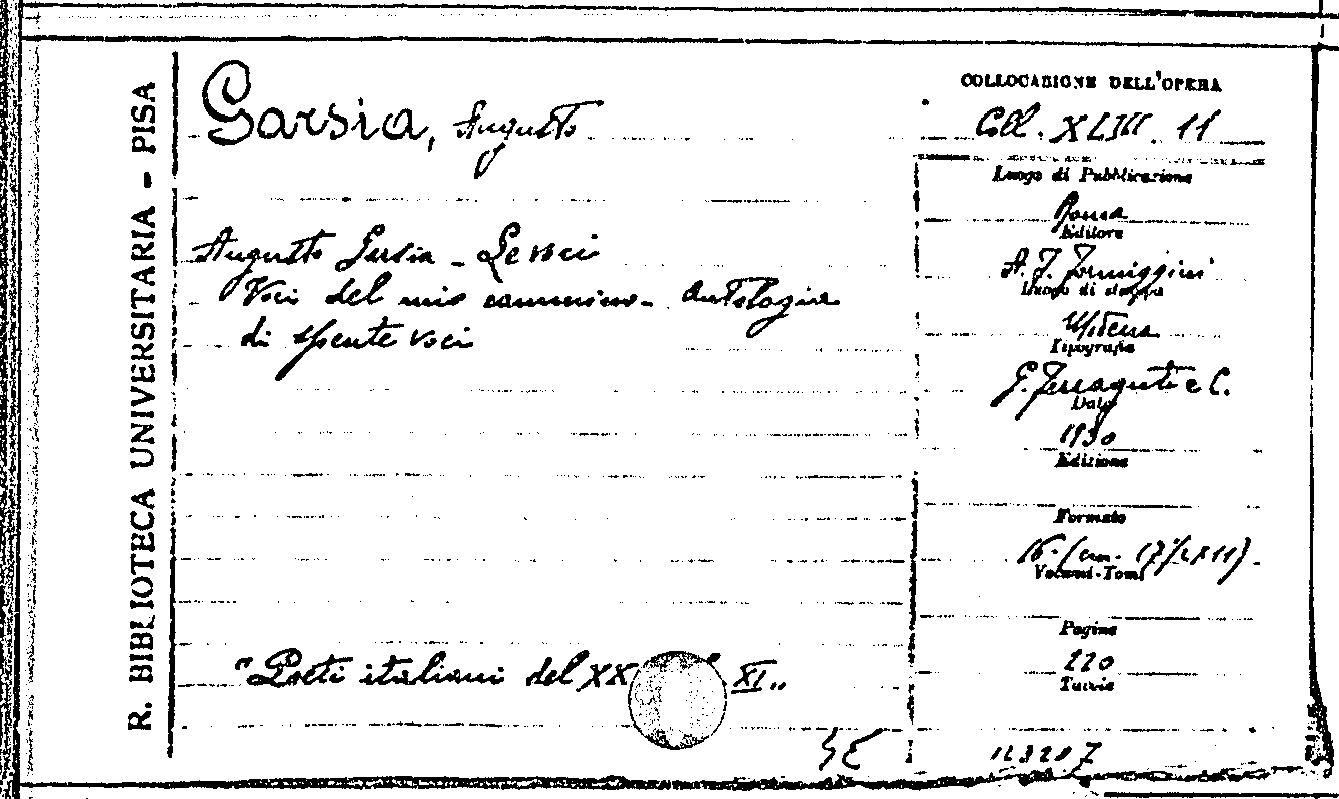 R. BIBLIOTECA UNIVERSITARIA - PISA
Garsia, Augusto
Augusto Garsia - Le voci
Voci del mio cammino - Antologia
di spente voci
"Poeti italiani del XX XI"
COLLOCAZIONE DELL'OPERA
Coll. XLIII. 11
Luogo di Pubblicazione
Roma
Editore
A. F. Formiggini
Luogo di stampa
Modena
Tipografia
G. Ferraguti e C.
Data
1930
Edizione
Formato
16° (cm. 17½x11)
Volumi-Tomi
Pagine
220
Tavole